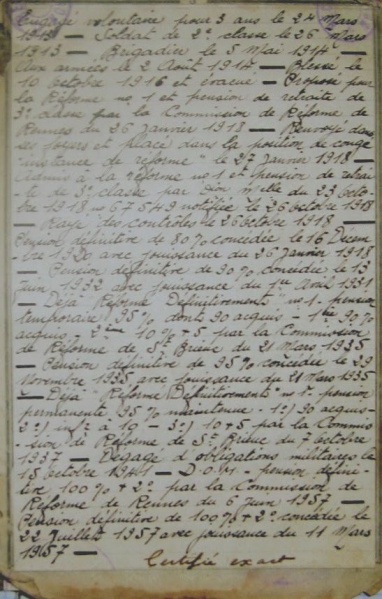 Engagé volontaire pour 3 ans le 24 Mars
1913 — Soldat de 2e classe le 26 Mars
1913 — Brigadier le 5 Mai 1914 —
Aux armées le 2 Août 1914 — Blessé le
10 octobre 1916 et évacué — Proposé pour
la Réforme no 1 et pension de retraite de
3e classe par la Commission de Réforme de
Rennes du 26 Janvier 1918 — Renvoyé dans
ses foyers et placé dans la position de congé
"instance de réforme" le 27 Janvier 1918 —
Admis à la réforme no 1 et pension de retrai-
te de 3e classe par du 23 octo-
bre 1918 no 67549 notifiée le 26 octobre 1918
— Rayé des contrôles le 26 octobre 1918 —
Pension définitive de 80 % concédée le 16 Décem-
bre 1920 avec jouissance du 26 Janvier 1918
— Pension définitive de 90 % concédée le 13
Juin 1932 avec jouissance du 1er Avril 1931
— Déjà "Réformé Définitivement" no 1 - pension
temporaire 95 % dont 90 acquis - 90 %
acquis - 2ème 10 % + 5 par la Commission
de Réforme de St Brieuc du 21 Mars 1935
— Pension définitive de 95 % concédée le 29
Novembre 1935 avec jouissance du 21 Mars 1935
— Déjà "Réformé Définitivement" no 1 - pension
permanente 95 % maintenue - 1o) 90 acquis -
2o) inf. à 10 - 3o) 10 + 5 par la Commis-
sion de Réforme de St Brieuc du 7 octobre
1937 — Dégagé d'obligations militaires le
15 octobre 1941 — D.O.M - pension défini-
tive 100 % + 2o par la Commission de
Réforme de Rennes du 6 Juin 1957 —
Pension définitive de 100 % + 2o concédée le
22 Juillet 1957 avec jouissance du 11 Mars
1957 —
Certifié exact